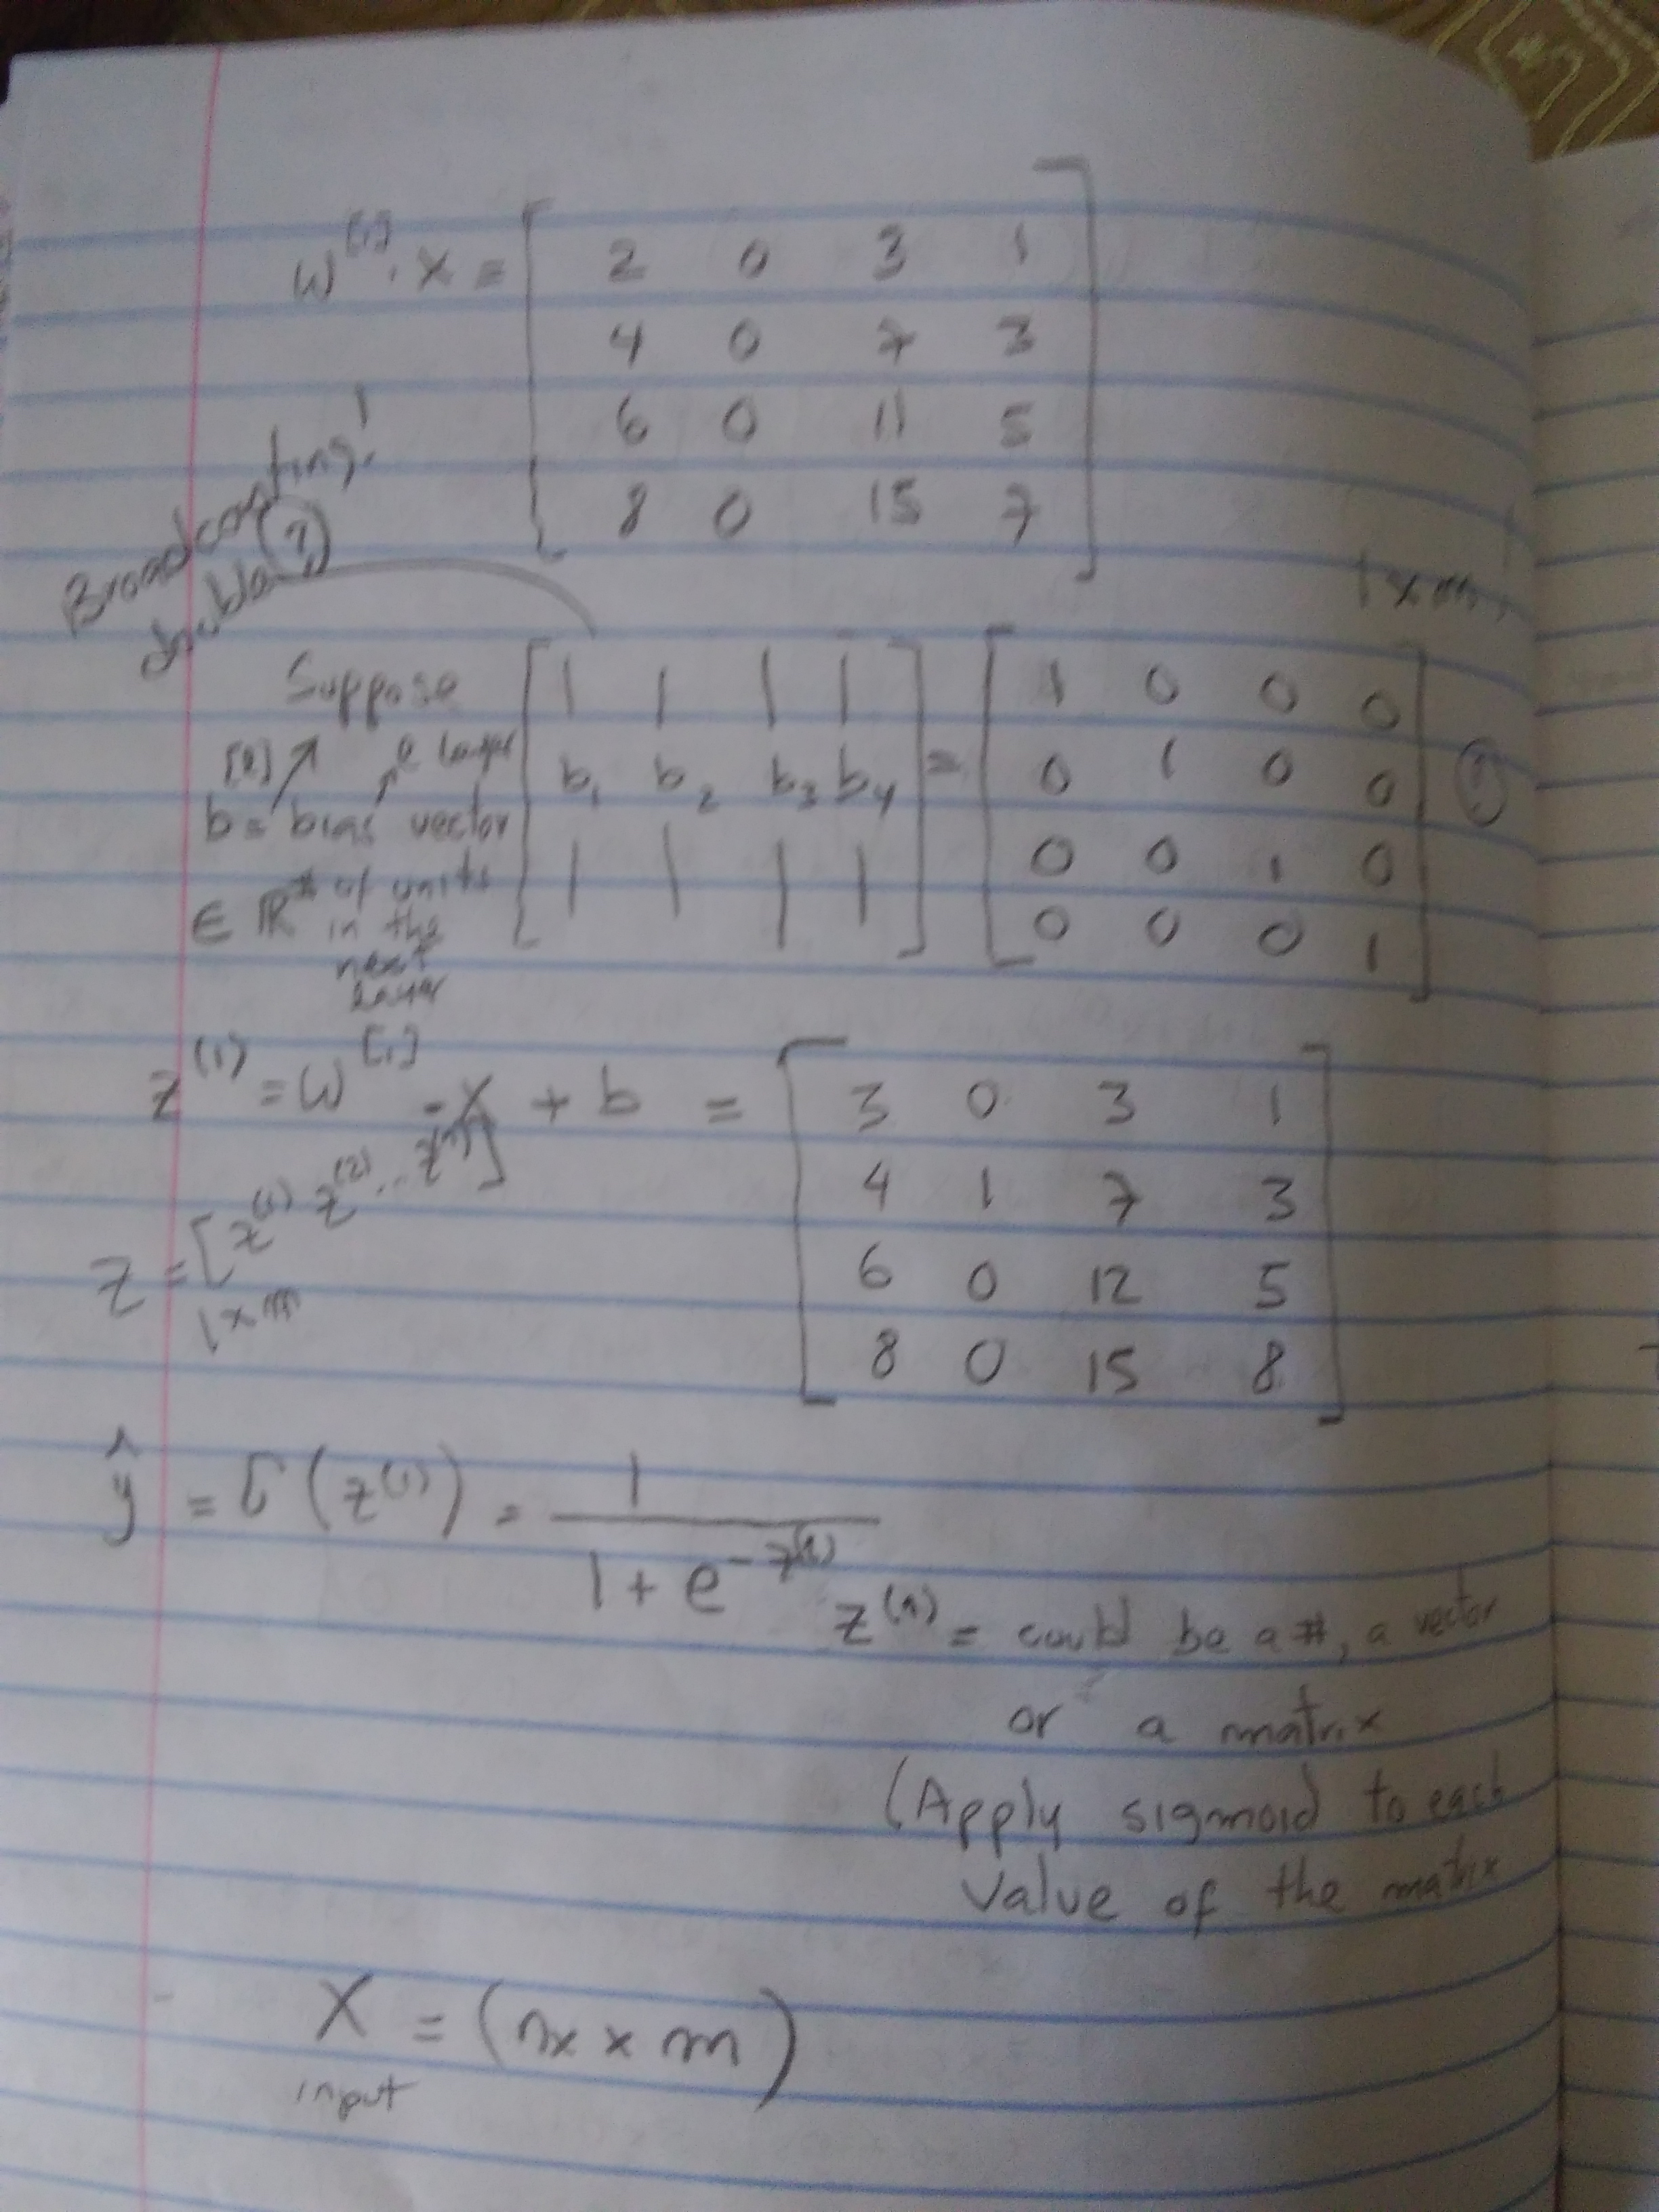 W[1] . X = [ 2 0 3 1
4 0 7 3
6 0 11 5
8 0 15 7 ]
Broadcasting!
double(?)
1 x m
Suppose [ | | | | ] = [ 1 0 0 0
[l] l layer b1 b2 b3 b4 0 1 0 0
b = bias vector
∈ R # of units | | | | 0 0 1 0
in the 0 0 0 1 ]
next
layer
z(1) = W[1] . X + b = [ 3 0 3 1
4 1 7 3
6 0 12 5
8 0 15 8 ]
Z = [z(1) z(2) ... z(m)]
1 x m
ŷ = σ(z(1)) = 1
1 + e-z(1)
z(1) = could be a #, a vector
or a matrix
(Apply sigmoid to each
value of the matrix
X = (nx x m)
input